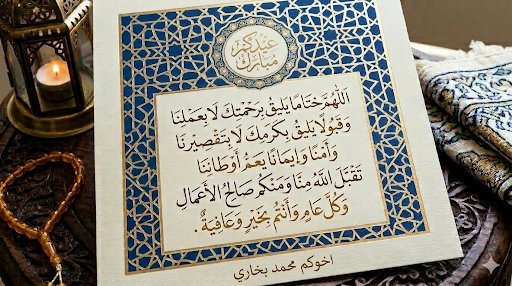 عيدكم
مبارك
اَللّٰهُمَّ خِتَامًا يَلِيقُ بِرَحْمَتِكَ لَا بِعَمَلِنَا
وَقَبُولًا يَلِيقُ بِكَرَمِكَ لَا بِتَقْصِيرِنَا
وَأَمْنًا وَإِيمَانًا يَعُمُّ أَوْطَانَنَا
تَقَبَّلَ اللّٰهُ مِنَّا وَمِنْكُمْ صَالِحَ الأَعْمَالِ
وَكُلُّ عَامٍ وَأَنْتُمْ بِخَيْرٍ وَعَافِيَةٌ .
اخوكم محمد بخاري